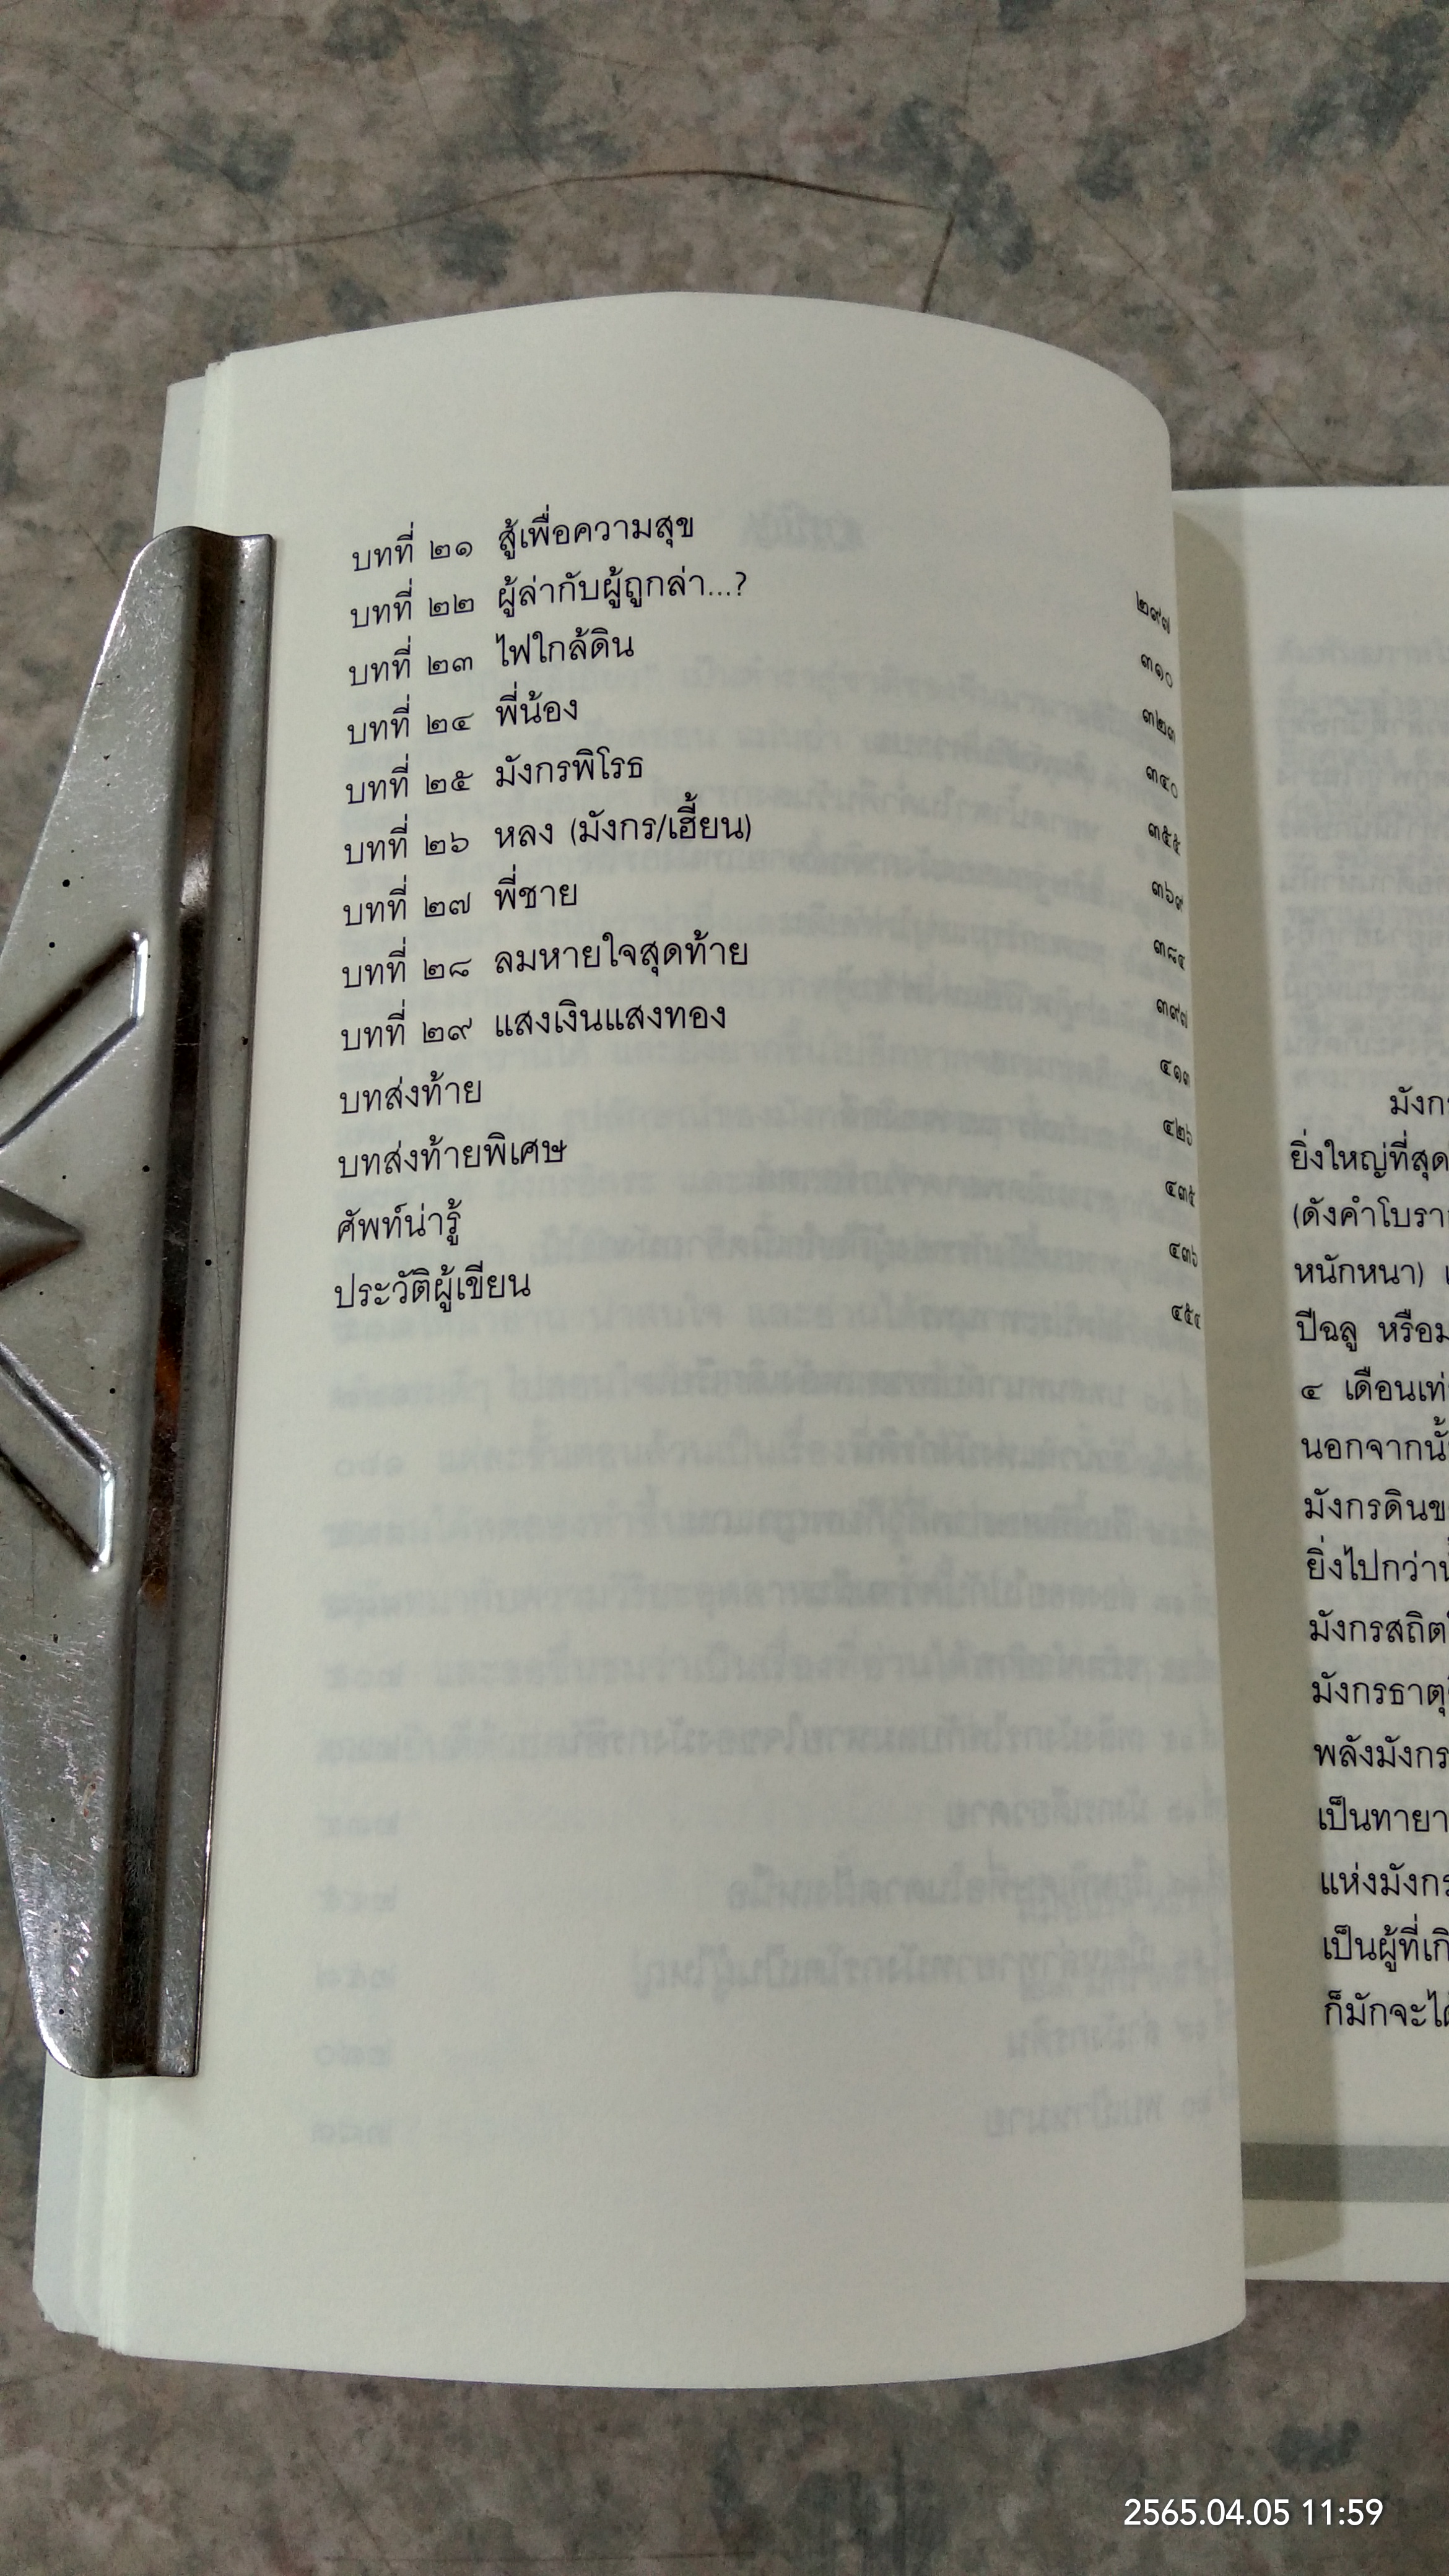 บทที่ ๒๑ สู้เพื่อความสุข ๒๙๗
บทที่ ๒๒ ผู้ล่ากับผู้ถูกล่า...? ๓๑๐
บทที่ ๒๓ ไฟใกล้ดิน ๓๒๓
บทที่ ๒๔ พี่น้อง ๓๔๐
บทที่ ๒๕ มังกรพิโรธ ๓๕๕
บทที่ ๒๖ หลง (มังกร/เฮี้ยน) ๓๖๙
บทที่ ๒๗ พี่ชาย ๓๘๔
บทที่ ๒๘ ลมหายใจสุดท้าย ๓๙๗
บทที่ ๒๙ แสงเงินแสงทอง ๔๑๓
บทส่งท้าย ๔๒๖
บทส่งท้ายพิเศษ ๔๓๕
ศัพท์น่ารู้ ๔๓๖
ประวัติผู้เขียน ๔๕๔
มังกร
ยิ่งใหญ่ที่สุด
(ดังคำโบรา
หนักหนา)
ปีฉลู หรือม
๔ เดือนเท่
นอกจากนั้
มังกรดินข
ยิ่งไปกว่านั้
มังกรสถิต
มังกรธาตุ
พลังมังกร
เป็นทายา
แห่งมังกร
เป็นผู้ที่เกิ
ก็มักจะได้
2565.04.05 11:59